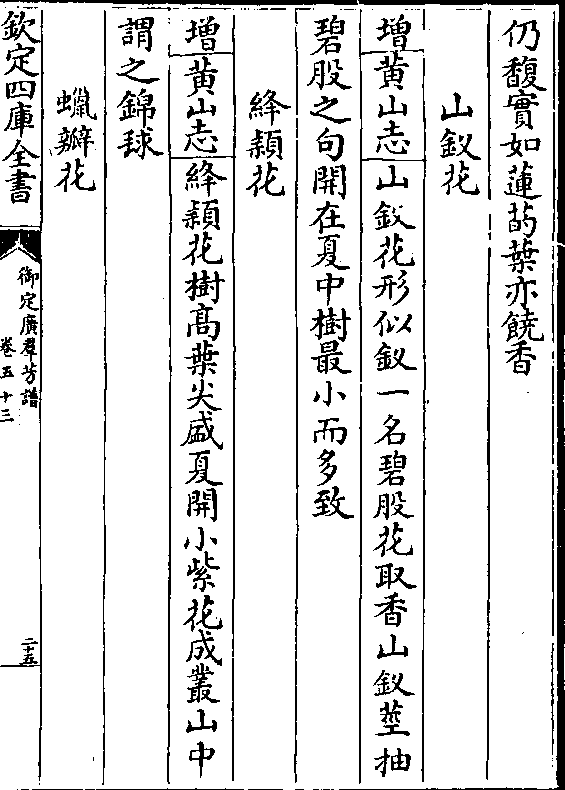 仍馥實如蓮菂葉亦饒香
山釵花
增黃山志山釵花形似釵一名碧股花取香山釵莖抽
碧股之句開在夏中樹最小而多致
絳纇花
增黃山志絳纇花樹高葉尖盛夏開小紫花成叢山中
謂之錦毬
蠟瓣花
欽定四庫全書
御定廣羣芳譜
卷五十三
二十五